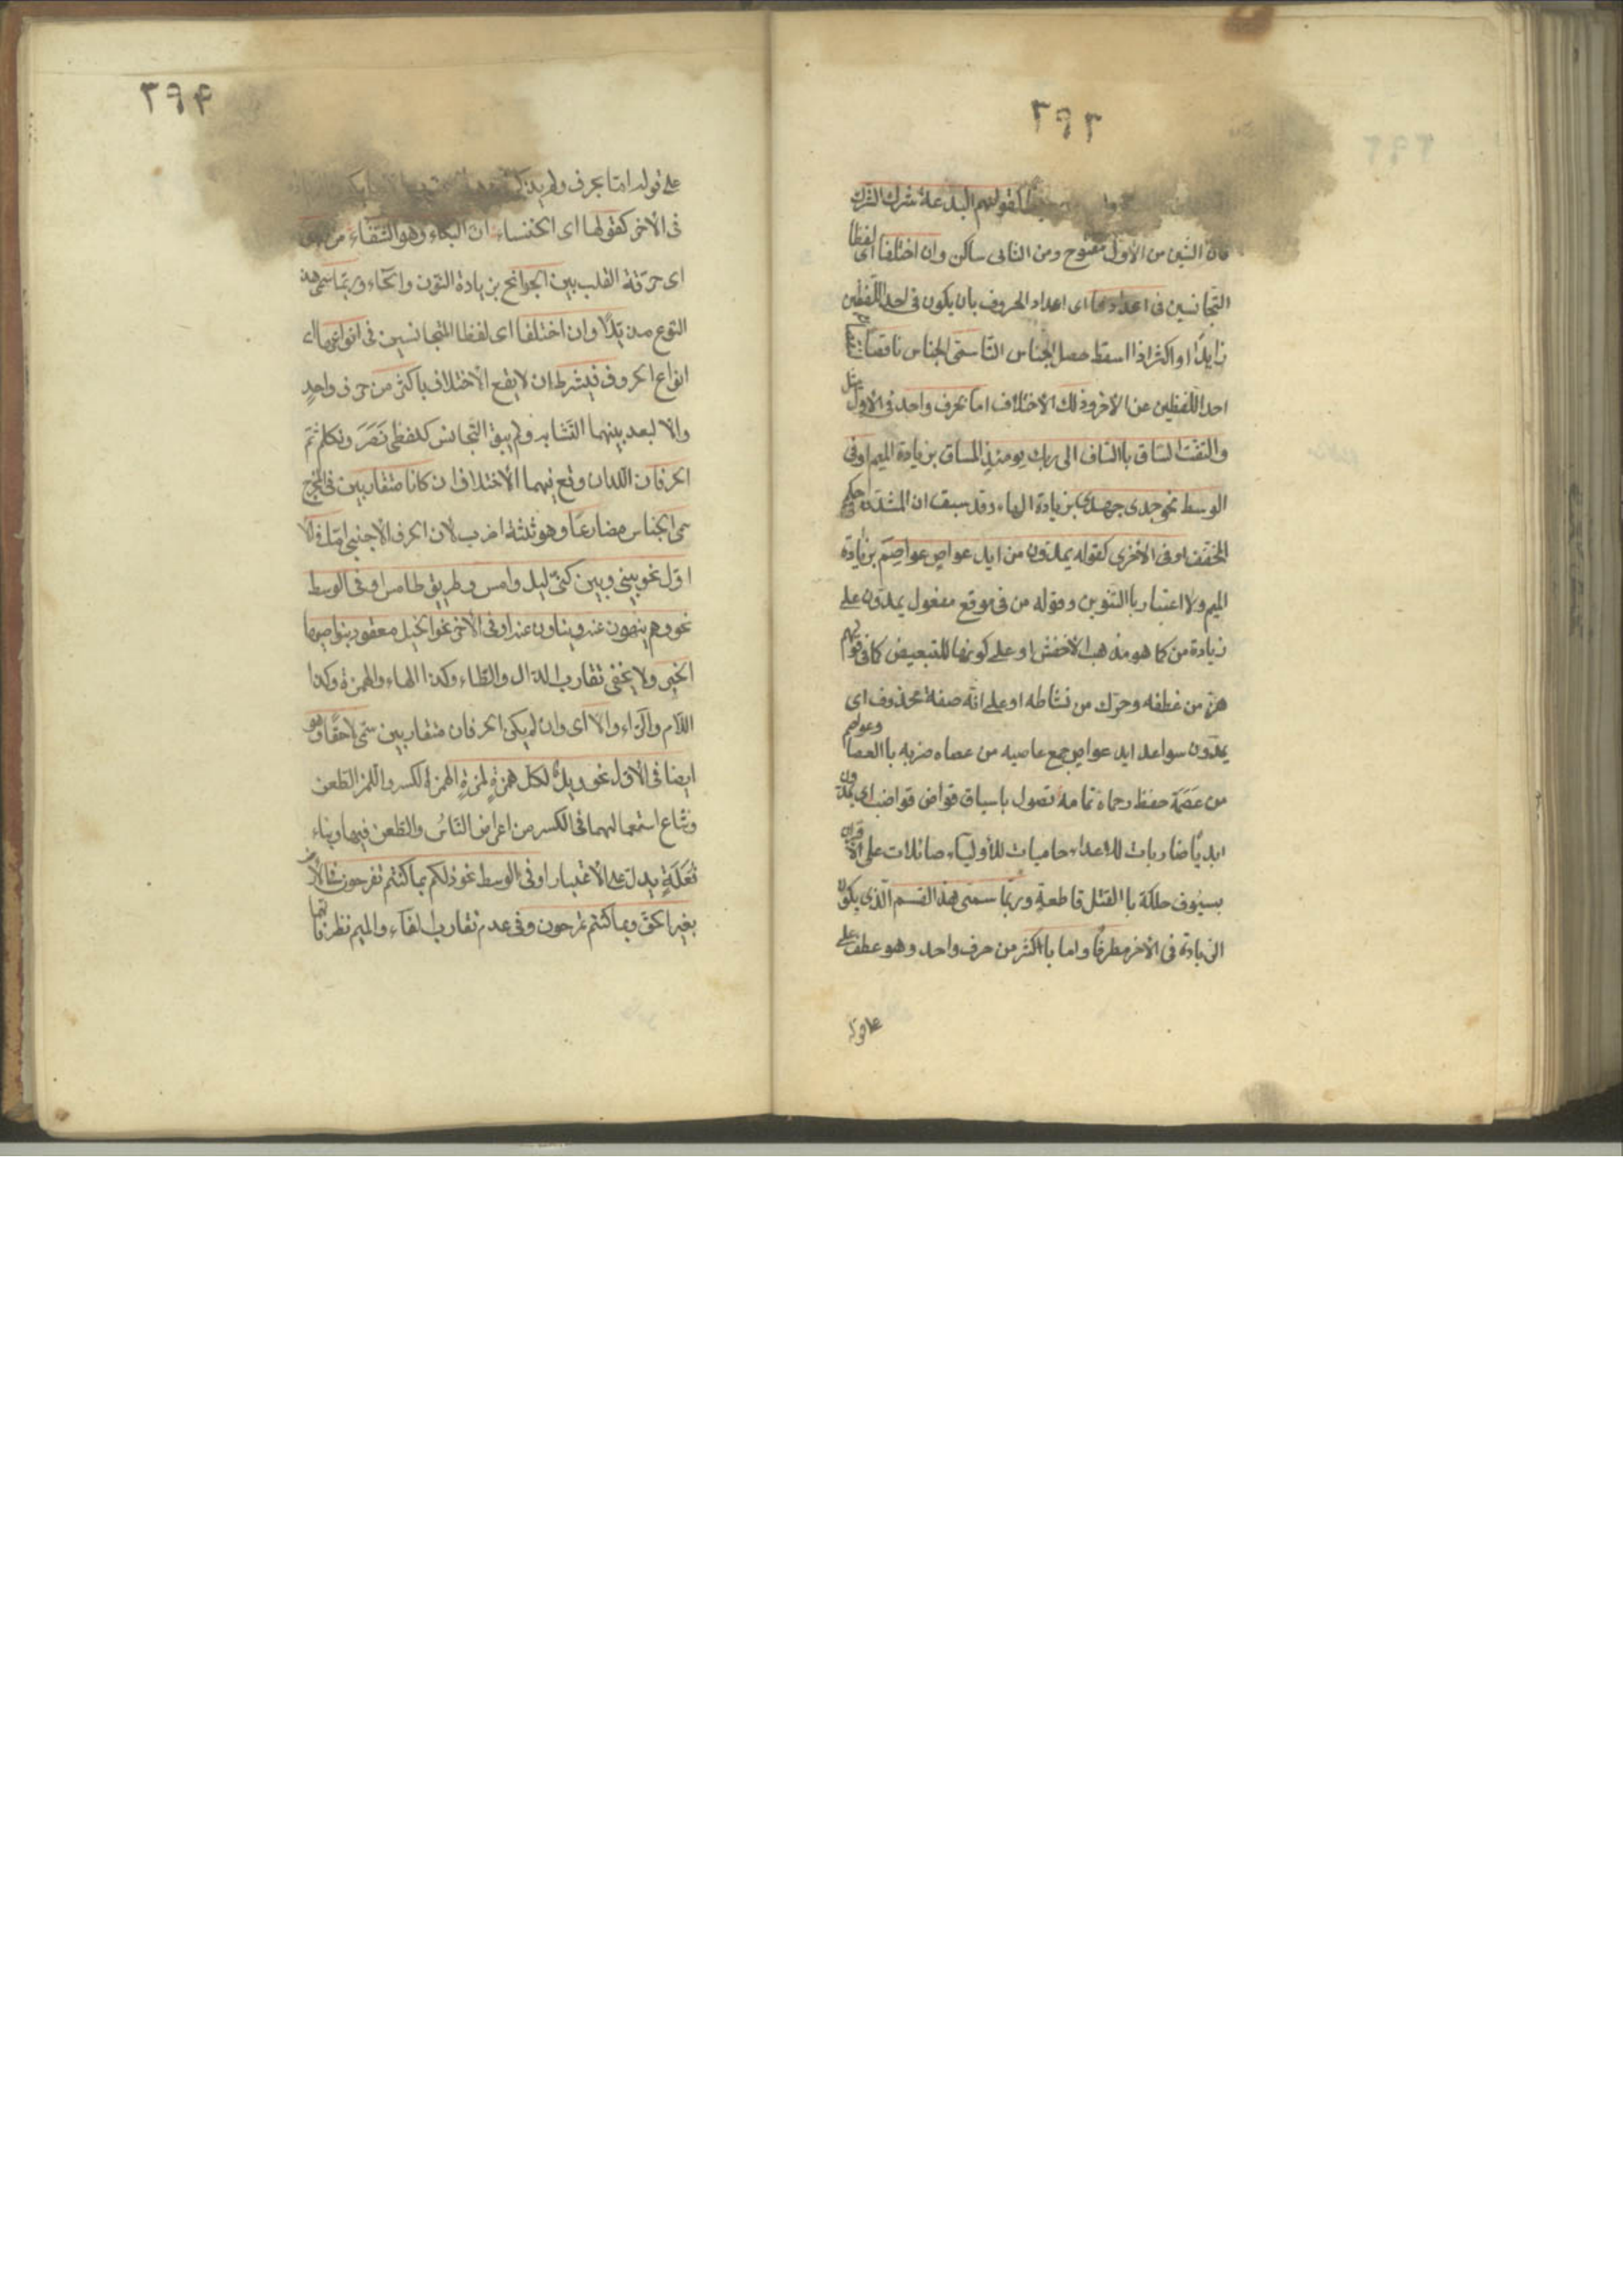 ٢٩٢
كقولهم البدعة شرك الشرك
فان الشين من الأول مفتوح ومن الثاني ساكن وان اختلفا اى لفظا
المتجانسين فى اعدادها اى اعداد الحروف بان يكون فى احد اللفظين
زايدًا او اكثر اذا اسقط حصل الجناس التا سمى الجناس ناقصا
احد اللفظين عن الآخر وذلك الاختلاف اما بحرف واحد فى الاول مثل
والتفت الساق باالساق الى ربك يومئذٍ المساق بزيادة الميم او فى
الوسط نحو جدى جهدى بزيادة الهاء وقد سبق ان المشدد حكم
المخفف او فى الاخرى كقوله يمدّون من ايد عواصٍ عواصِمَ بزيادة
الميم ولا اعتبار باالتنوين وقوله من فى موقع مفعول يمدّون على
زيادة من كما هو مذهب الأخفش او على كونها للتبعيض كما فى قولهم
هزّ من عطفه وحرّك من نشاطه او على انّه صفة محذوف اى
يمدّون سواعد ايد عواصٍ جمع عاصيه من عصاه ضربه باالعصا وعواصم
من عَصَمَهُ حفظه وحماه تمامه تصول باسياق قواض قواضب اى يمدون
ايديًا ضاربات للاعداء حاميات للأولياء صائلات على الاقران
بسيوف حاكمة باالقتل قاطعةٍ وربّما سمى هذا القسم الّذى يكون
الزيادة فى الآخر مطرفًا واما باكثر من حرف واحد وهو عطف على
على قوله
٢٩۴
على قوله امّا بحرف ولم يذكر
فى الآخر كقولها اى الخنساء ان البكاء وهو الشفاء من الجوى
اى حرقة القلب بين الجوانح بزيادة النون والحاء وربّما سمى هذا
النوع مذيّلًا وان اختلفا اى لفظا المتجانسين فى انواعها اى
انواع الحروف فيشرط ان لا يقع الاختلاف باكثر من حرف واحدٍ
والا لبعد بينهما التشابه ولم يبق التجانس كلفظى نَصَرَ ونكل ثم
الحرفان اللذان وقع فيهما الاختلاف ان كانا متقاربين فى المخرج
سمى الجناس مضارعًا وهو ثلثة اضرب لان الحرف الاجنبى امّا فى الا
اوّل نحو بينى وبين كنّى ليل دامس وطريق طامس او فى الوسط
نحو وهم ينهون عنه وينأون عنه او فى الآخر نحو الخيل معقود بنواصيها
الخير ولا يخفى تقارب الدال والطاء وكذا الهاء والهمزة وكذا
اللام والراء والا اى وان لم يكن الحرفان متقاربين سمّى لاحقًا وهو
ايضا فى الاول نحو ويلٌ لكل همزةٍ لمزةٍ الهمزة الكسر واللمز الطعن
وشاع استعمالهما فى الكسر من اعراض النّاس والطعن فيها وبناء
فُعَلَةٍ يدل على الاعتياد او فى الوسط نحو ذلكم بما كنتم تفرحون فى الارض
بغير الحق وبما كنتم تمرحون وفى عدم تقارب الفاء والميم نظر فانهما